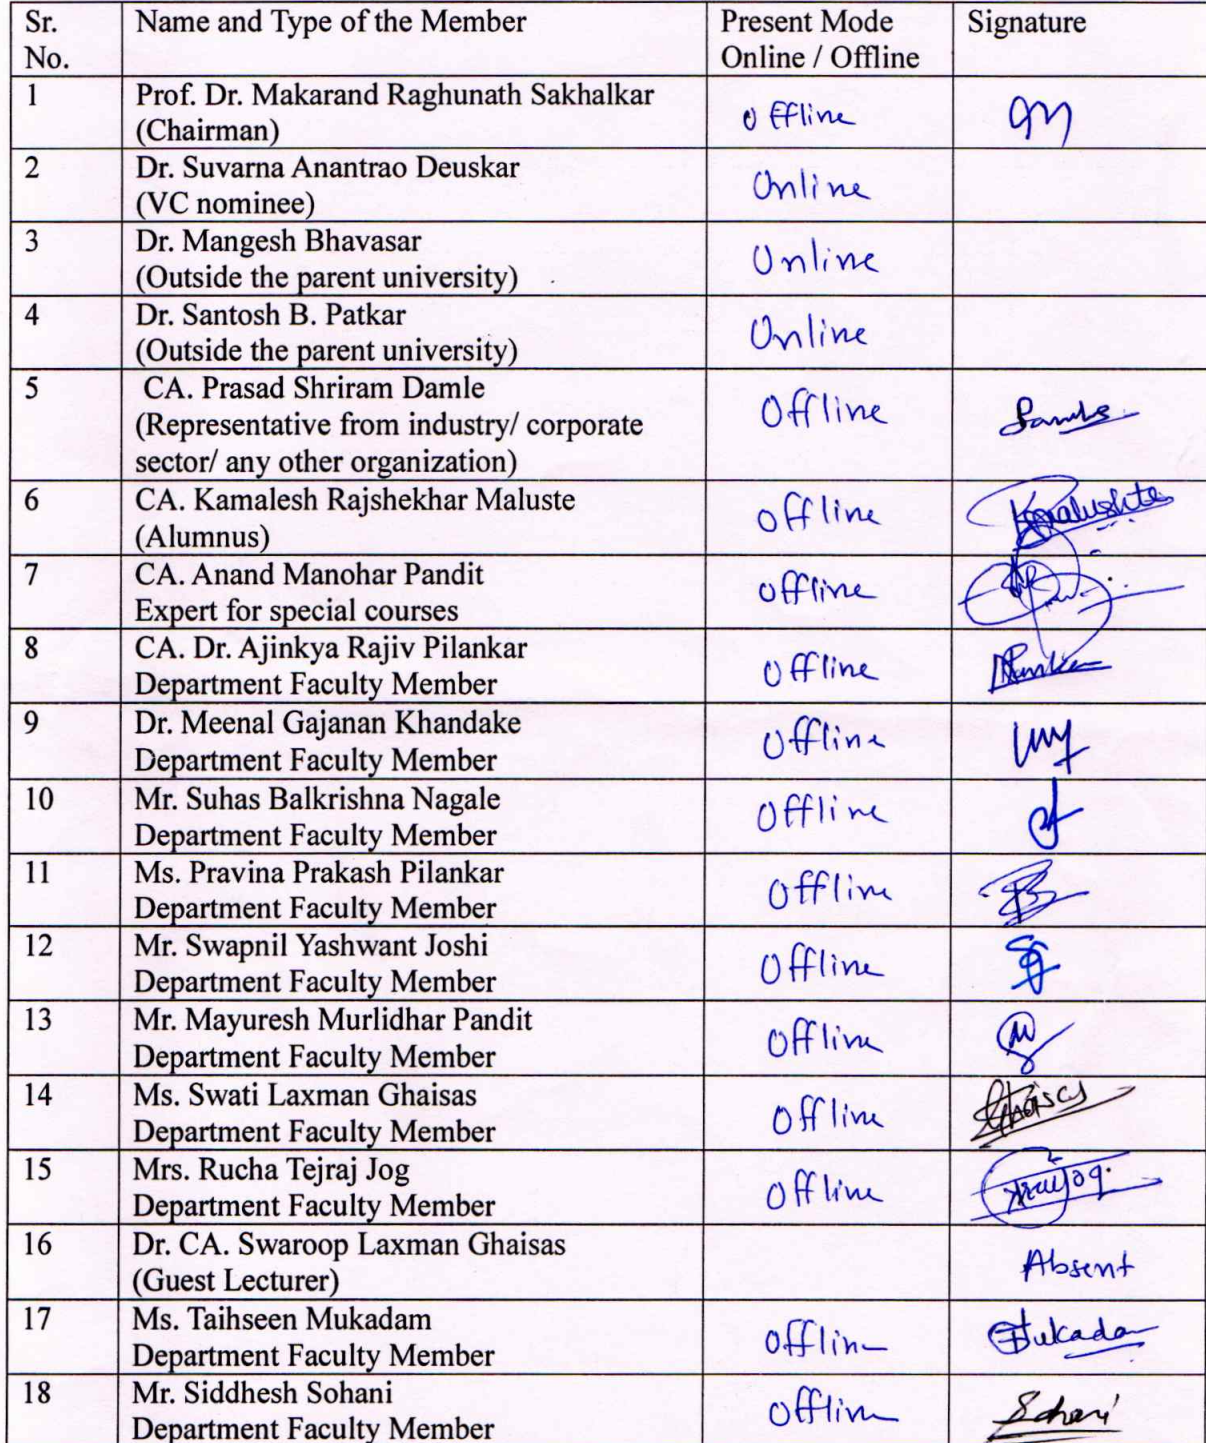 Sr. Name and Type of the Member Present Mode Signature
No. Online / Offline
1 Prof. Dr. Makarand Raghunath Sakhalkar
(Chairman) Offline
2 Dr. Suvarna Anantrao Deuskar
(VC nominee) Online
3 Dr. Mangesh Bhavasar
(Outside the parent university) Online
4 Dr. Santosh B. Patkar
(Outside the parent university) Online
5 CA. Prasad Shriram Damle
(Representative from industry/ corporate Offline
sector/ any other organization)
6 CA. Kamalesh Rajshekhar Maluste
(Alumnus) Offline
7 CA. Anand Manohar Pandit
Expert for special courses Offline
8 CA. Dr. Ajinkya Rajiv Pilankar
Department Faculty Member Offline
9 Dr. Meenal Gajanan Khandake
Department Faculty Member Offline
10 Mr. Suhas Balkrishna Nagale
Department Faculty Member Offline
11 Ms. Pravina Prakash Pilankar
Department Faculty Member Offline
12 Mr. Swapnil Yashwant Joshi
Department Faculty Member Offline
13 Mr. Mayuresh Murlidhar Pandit
Department Faculty Member Offline
14 Ms. Swati Laxman Ghaisas
Department Faculty Member Offline
15 Mrs. Rucha Tejraj Jog
Department Faculty Member Offline
16 Dr. CA. Swaroop Laxman Ghaisas
(Guest Lecturer) Absent
17 Ms. Taihseen Mukadam
Department Faculty Member Offline
18 Mr. Siddhesh Sohani
Department Faculty Member Offline